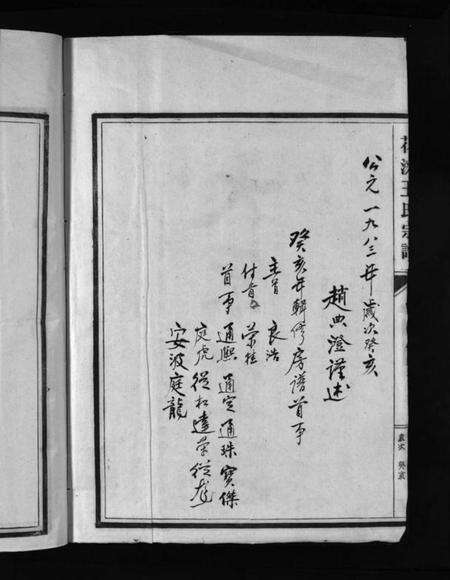 公元一九八三年歲次癸亥
趙典澄謹述
癸亥年輯修房谱首事
主首 良浩
付首 荣桂
首事 通熙 通定 通珠 寶傑
庭虎 從松 達荣 從龙
安波 庭龍
王氏宗譜
癸亥